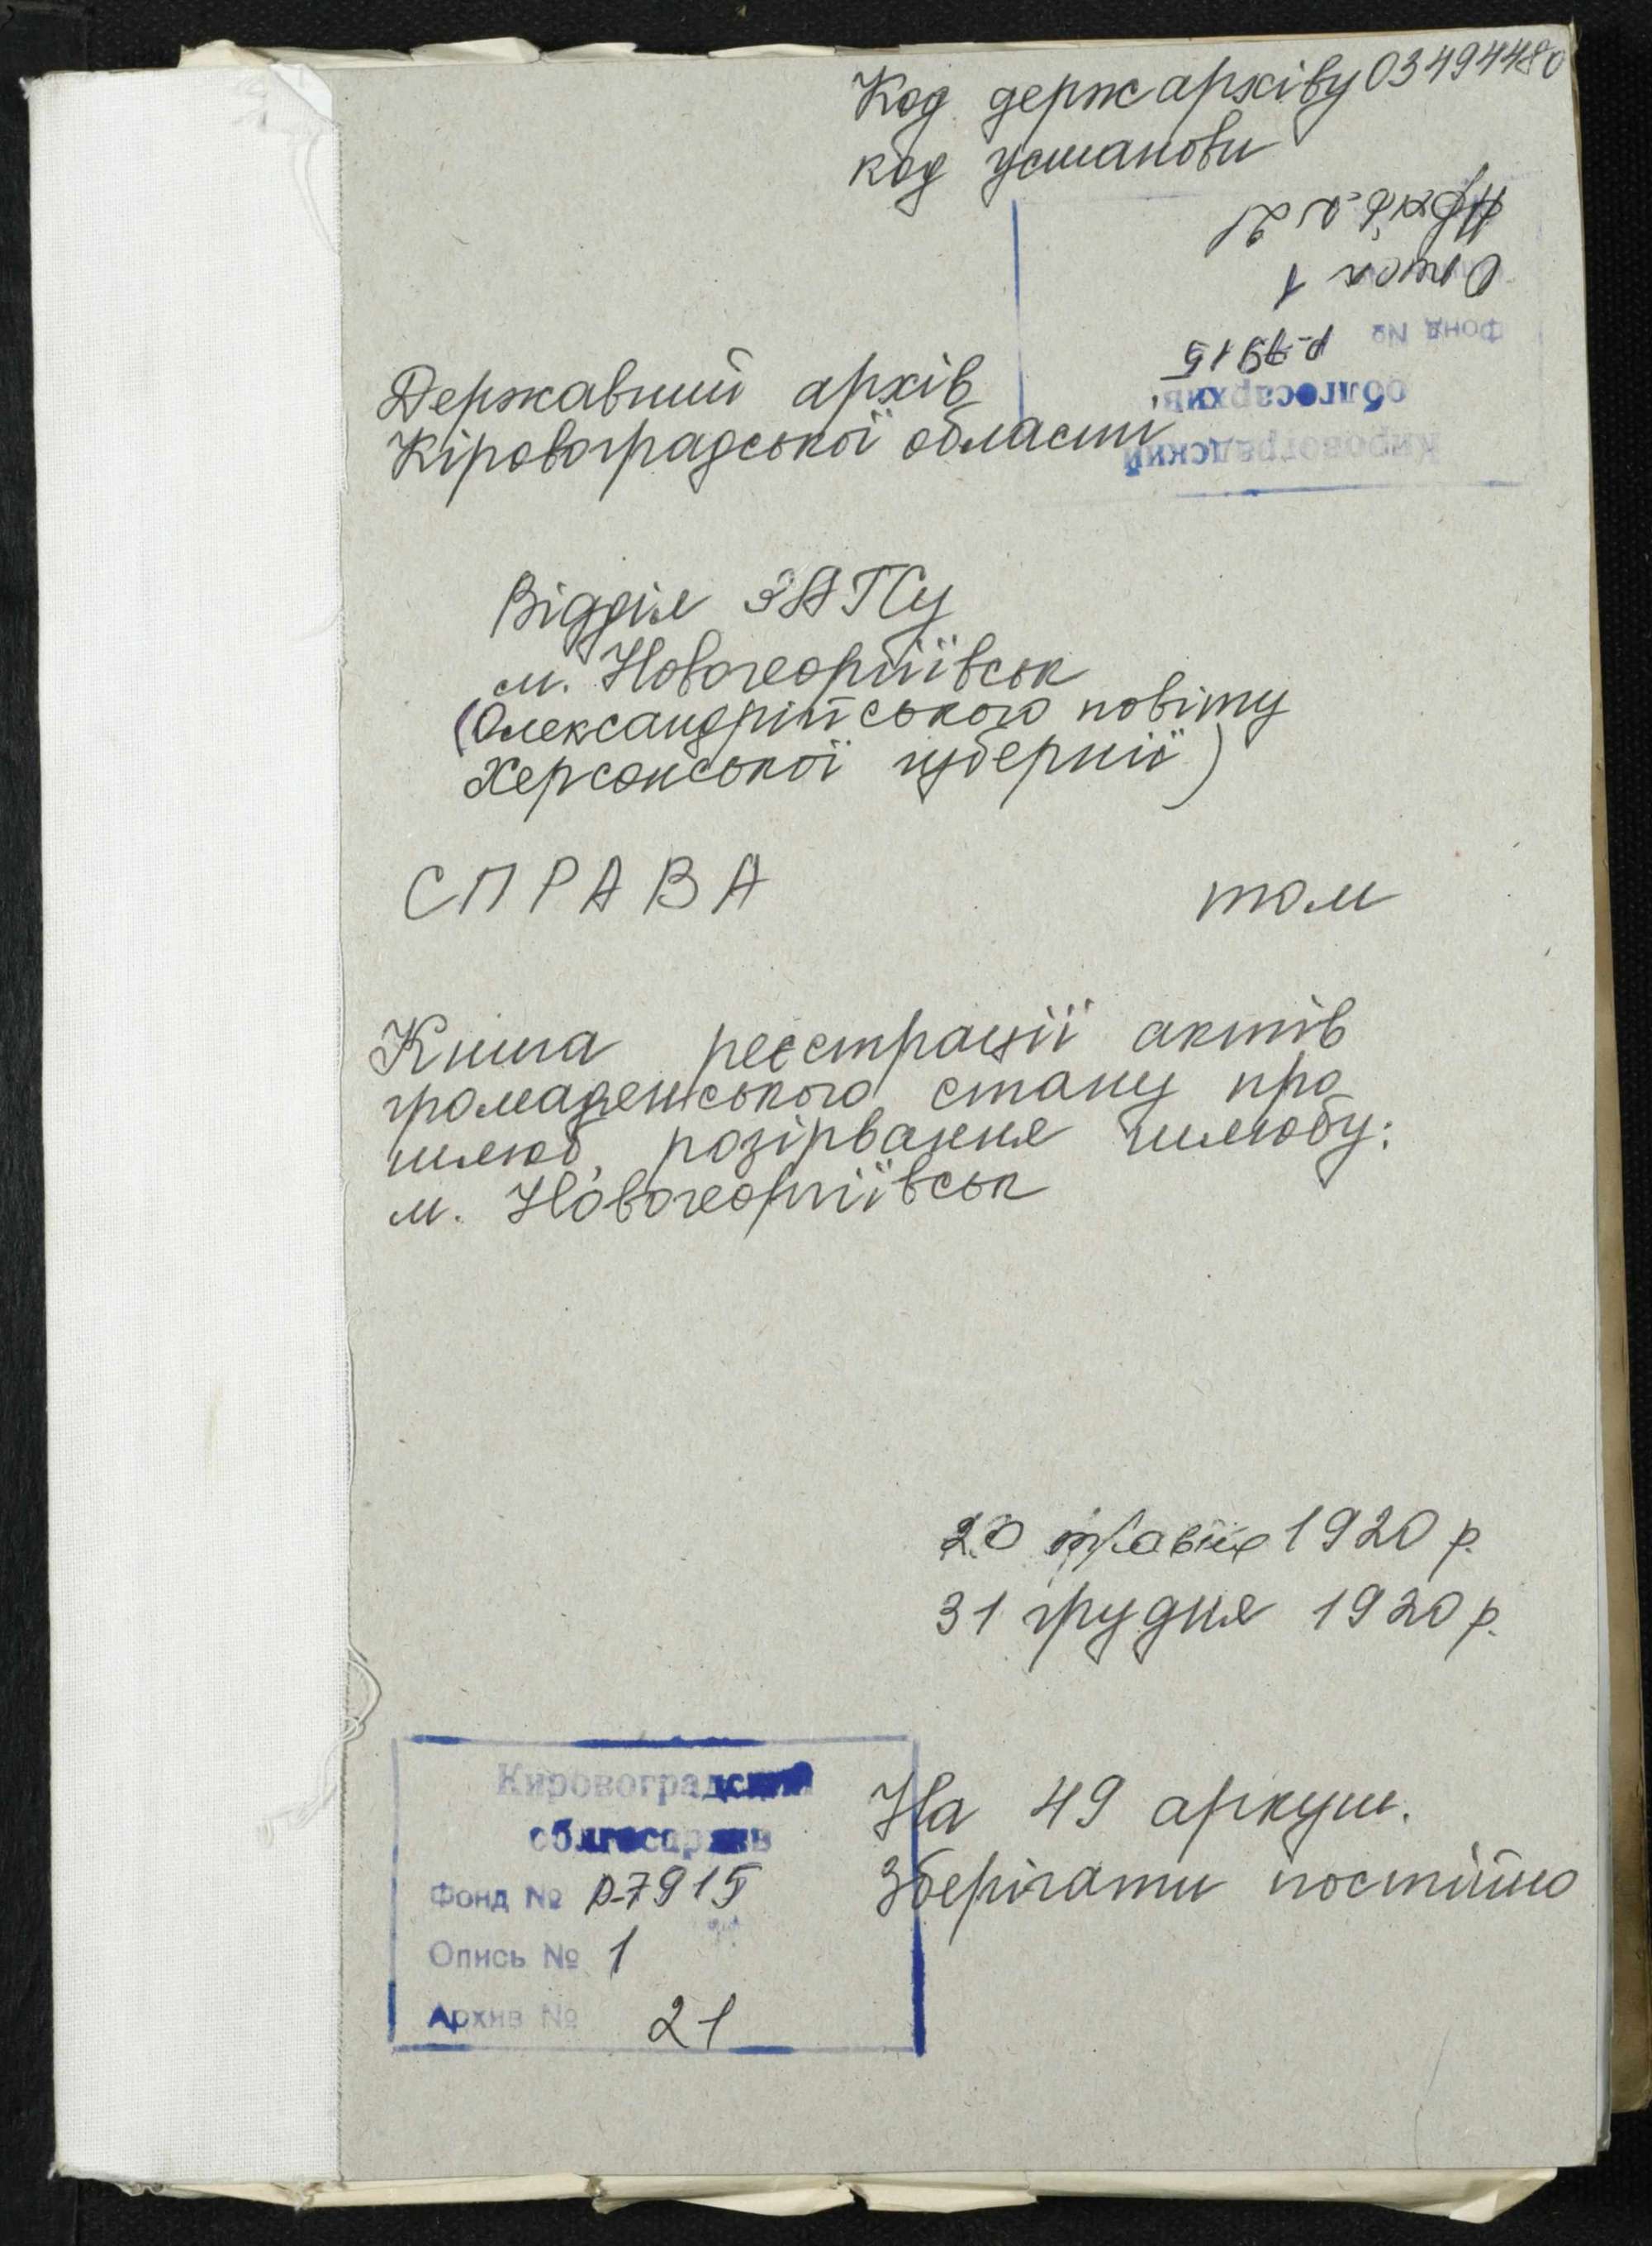 Код держархіву 03494480
код установи
Архів. № 21
Опись 1
Фонд № р-7915
облгосархив
Кировоградский
Державний архів
Кіровоградської області
Відділ ЗАГСу
м. Новогеоргіївськ
(Олександрійського повіту
Херсонської губернії)
СПРАВА том
Книга реєстрації актів
громадянського стану про
шлюб, розірвання шлюбу:
м. Новогеоргіївськ
20 травня 1920 р.
31 грудня 1920 р.
Кировоградский
облгосархив
Фонд № р-7915
Опись № 1
Архив № 21
На 49 аркуш.
Зберігати постійно